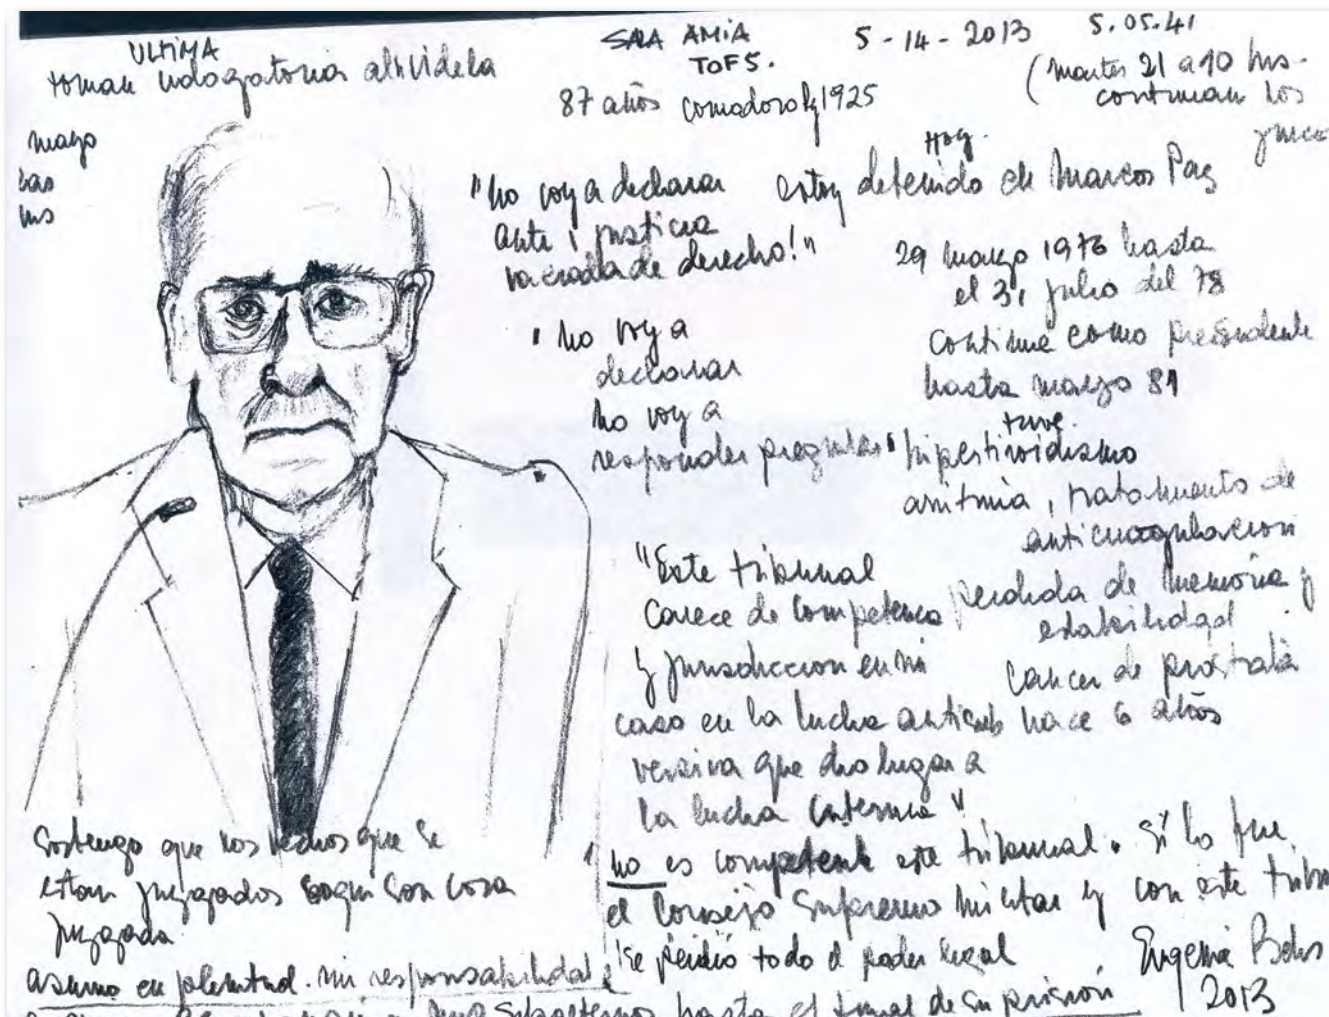 ULTIMA
toman indagatoria a Videla
SALA AMIA
TOF5.
5-14-2013
5.05.41
(martes 21 a 10 hrs.
continuan los
87 años comodoro Py 1925
marzo
"no voy a declarar
ante justicia
de derecho!"
Hoy.
estoy detenido en Marcos Paz
29 marzo 1976 hasta
el 31 julio del 78
continue como presidente
hasta marzo 81
"no voy a
declarar
no voy a
responder preguntas"
tuve
hipertiroidismo
arritmia, tratamiento de
anticuagulacion
perdida de memoria y
estabilidad
cancer de prostata
hace 6 años
"Este tribunal
carece de competencia
y jurisdiccion en mi
caso en la lucha antisub
versiva que dio lugar a
la lucha interna"
Sostengo que los hechos que se
estan juzgados aqui son cosa
juzgada
no es competente este tribunal. Si lo fue
el Consejo Supremo militar y con este tribu
se perdio todo el poder legal
asumo en plenitud. mi responsabilidad
subalternos hasta el final de su prision
Eugenia Bekeris
2013